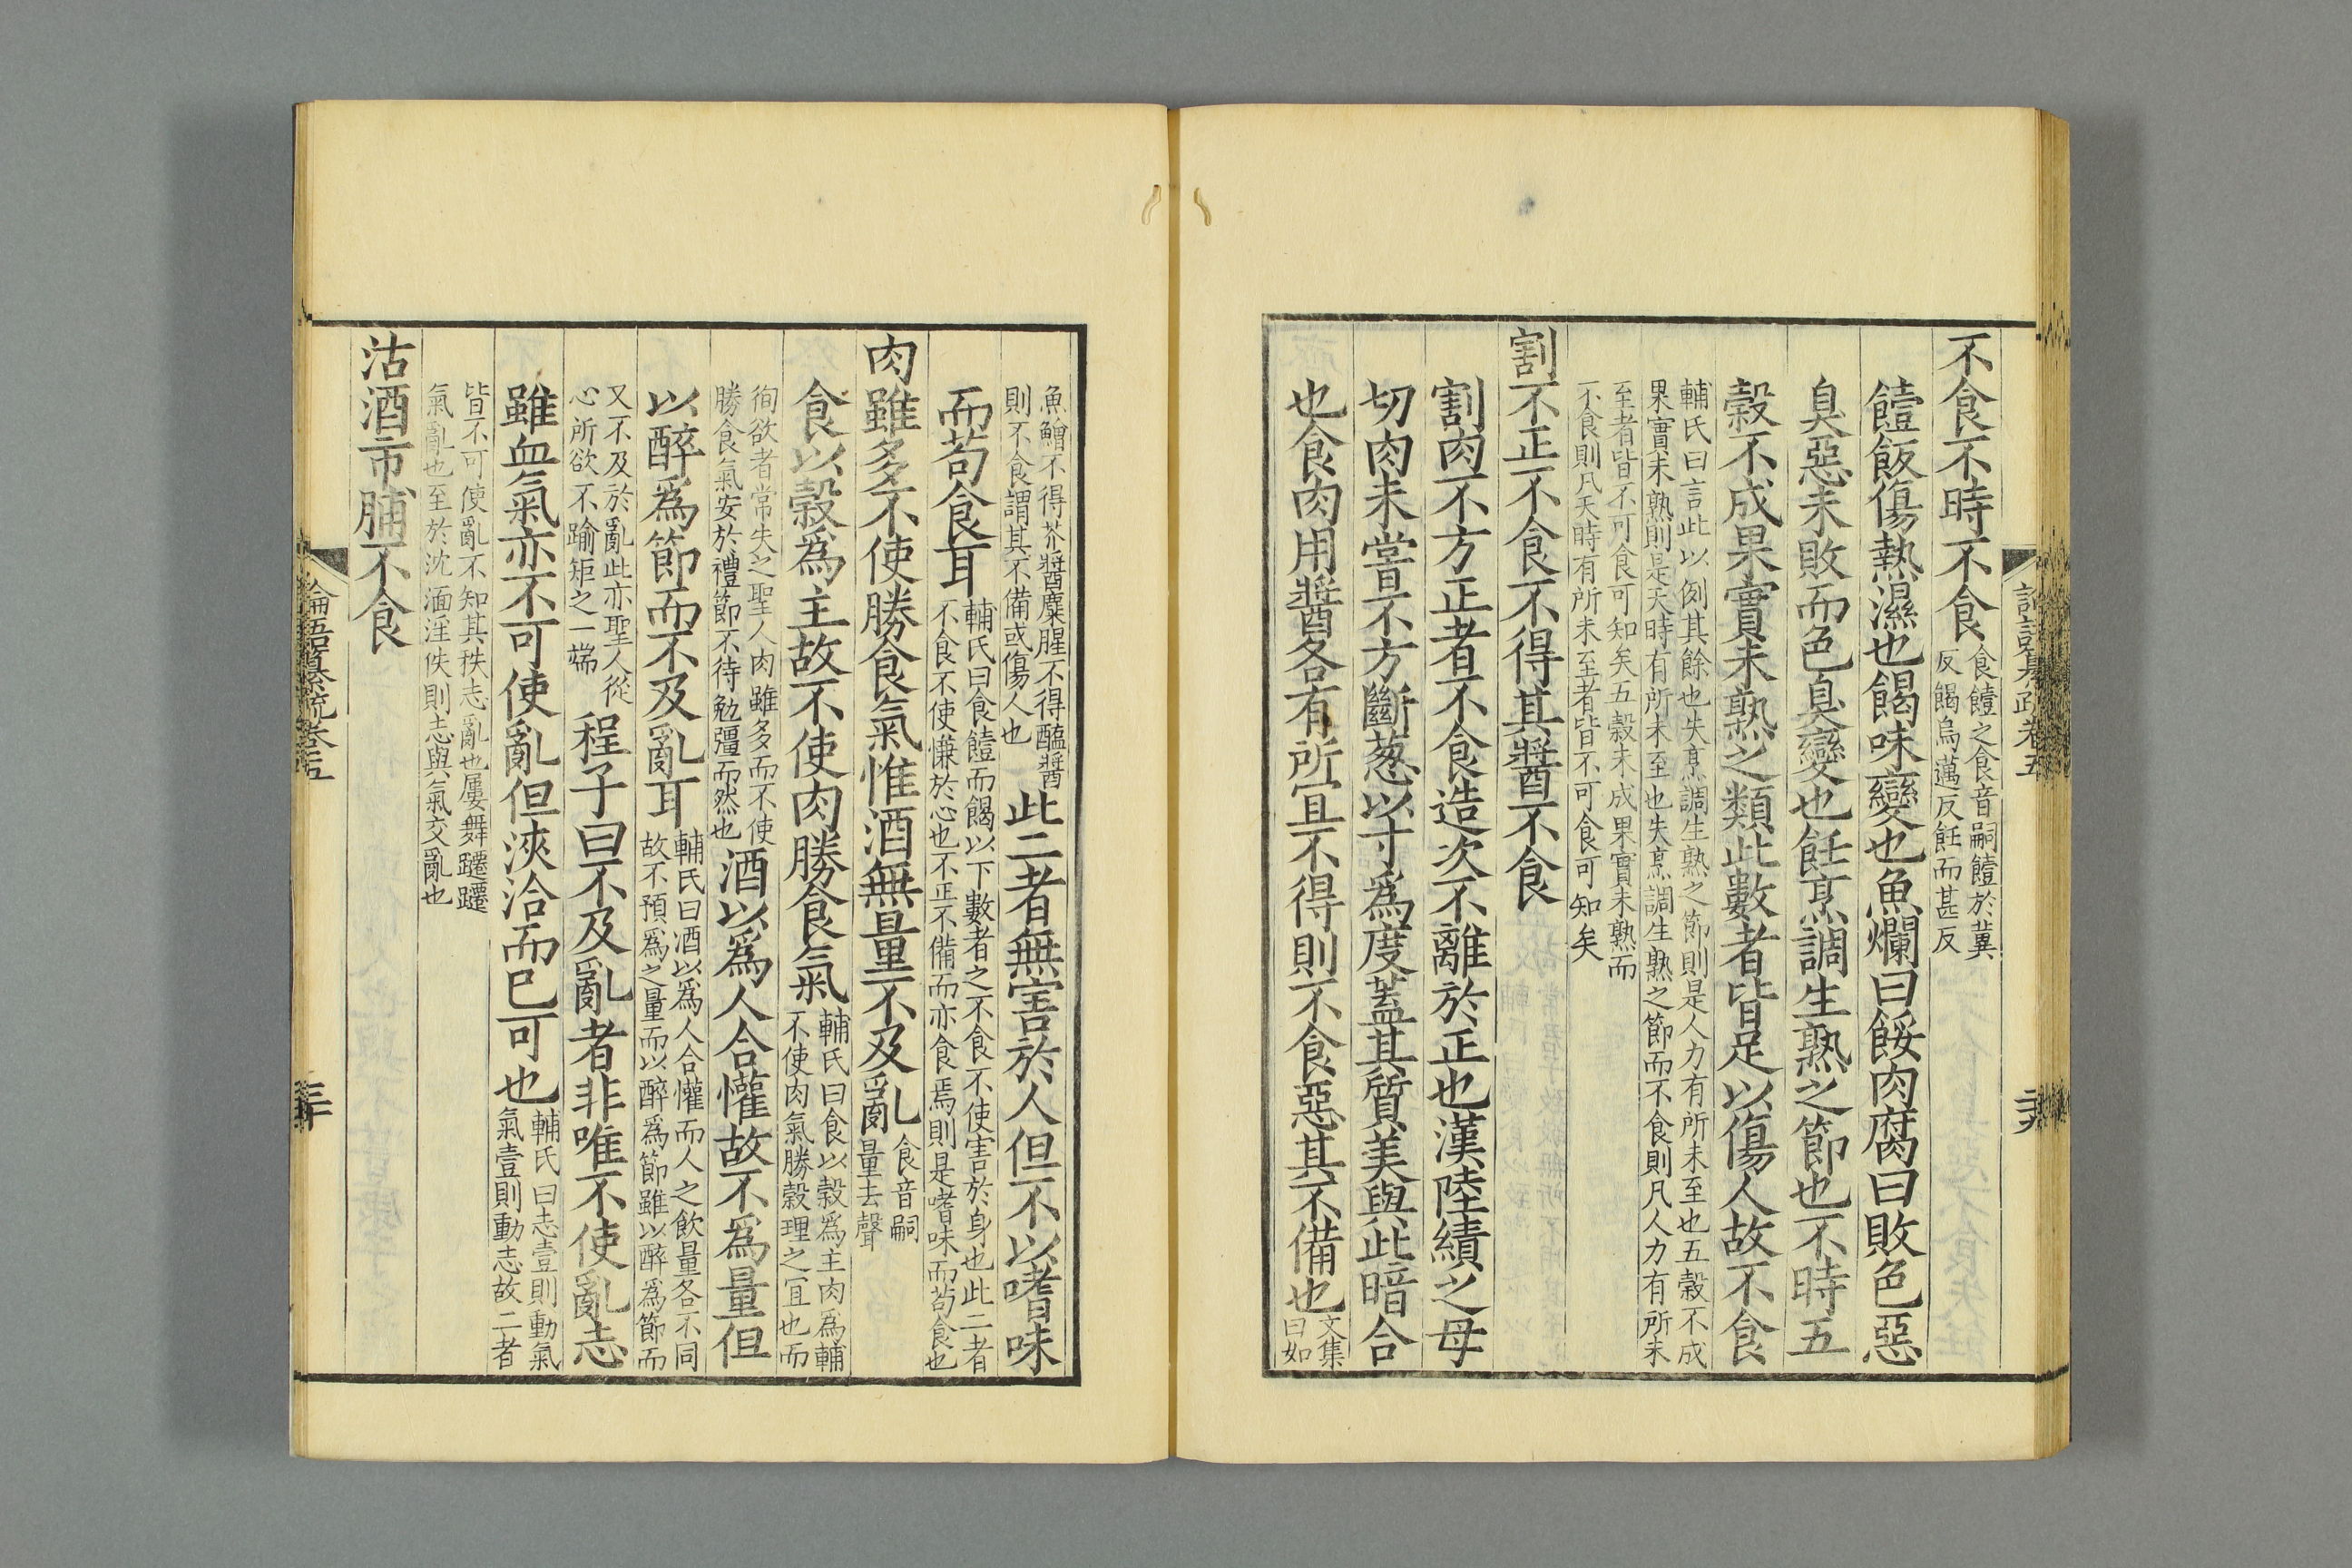 不食不時不食食饐之食音嗣饐於冀反餲烏邁反飪而甚反
饐飯傷熱濕也餲味變也魚爛曰餒肉腐曰敗色惡
臭惡未敗而色臭變也飪烹調生熟之節也不時五
穀不成果實未熟之類此數者皆足以傷人故不食
輔氏曰言此以例其餘也失烹調生熟之節則是人力有所未至也五穀不成
果實未熟則是天時有所未至也失烹調生熟之節而不食則凡人力有所未
至者皆不可食可知矣五穀未成果實未熟而
不食則凡天時有所未至者皆不可食可知矣
割不正不食不得其醬不食
割肉不方正者不食造次不離於正也漢陸績之母
切肉未嘗不方斷葱以寸爲度蓋其質美與此暗合
也食肉用醬各有所宜不得則不食惡其不備也文集曰如
魚鱠不得芥醬麋腥不得醢醬則不食謂其不備或傷人也此二者無害於人但不以嗜味
而苟食耳輔氏曰食饐而餲以下數者之不食不使害於身也此二者不食不使慊於心也不正不備而亦食焉則是嗜味而苟食也
肉雖多不使勝食氣惟酒無量不及亂食音嗣量去聲
食以穀爲主故不使肉勝食氣輔氏曰食以穀爲主肉爲輔不使肉氣勝穀理之宜也而
徇欲者常失之聖人肉雖多而不使勝食氣安於禮節不待勉彊而然也酒以爲人合懽故不爲量但
以醉爲節而不及亂耳輔氏曰酒以爲人合懽而人之飲量各不同故不預爲之量而以醉爲節雖以醉爲節而
又不及於亂此亦聖人從心所欲不踰矩之一端程子曰不及亂者非唯不使亂志
雖血氣亦不可使亂但浹洽而已可也輔氏曰志壹則動氣氣壹則動志故二者
皆不可使亂不知其秩志亂也屢舞躚躚
氣亂也至於沈湎淫佚則志與氣交亂也
沽酒市脯不食
論語纂疏卷五
三十